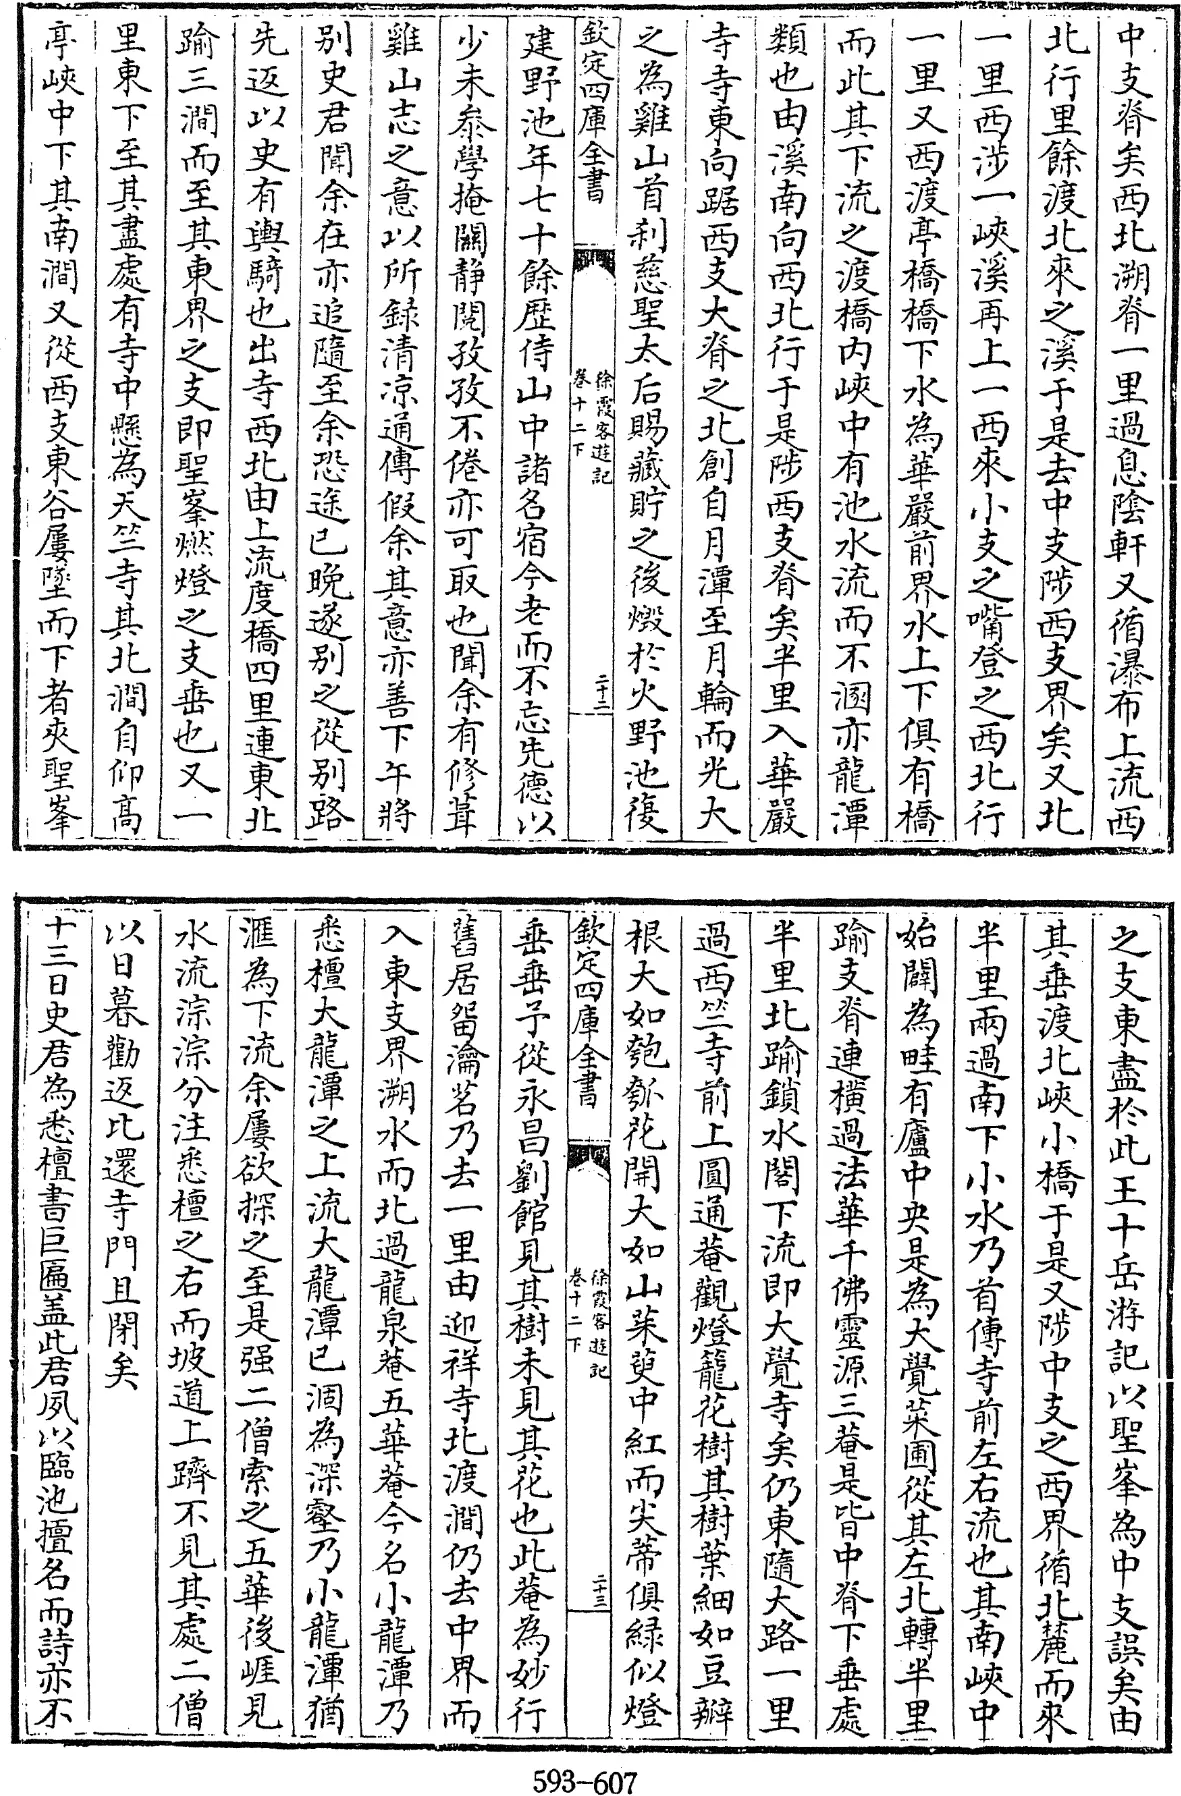 中支脊矣西北溯脊一里過息陰軒又循瀑布上流西
北行里餘渡北來之溪于是去中支陟西支界矣又北
一里西涉一峽溪再上一西來小支之嘴登之西北行
一里又西渡亭橋橋下水為華嚴前界水上下俱有橋
而此其下流之渡橋内峽中有池水流而不涸亦龍潭
類也由溪南向西北行于是陟西支脊矣半里入華嚴
寺寺東向踞西支大脊之北創自月潭至月輪而光大
之為雞山首刹慈聖太后賜藏貯之後燬於火野池復
欽定四庫全書
徐霞客遊記
卷十二下
二十二
建野池年七十餘歴侍山中諸名宿今老而不忘先德以
少未叅學掩關静閲孜孜不倦亦可取也聞余有修葺
雞山志之意以所錄清凉通傳假余其意亦善下午將
别史君聞余在亦追隨至余恐途已晩遂别之從别路
先返以史有輿騎也出寺西北由上流度橋四里連東北
踰三澗而至其東界之支即聖峯燃燈之支垂也又一
里東下至其盡處有寺中懸為天竺寺其北澗自仰高
亭峽中下其南澗又從西支東谷屢墜而下者夾聖峯
之支東盡於此王十岳游記以聖峯為中支誤矣由
其垂渡北峽小橋于是又陟中支之西界循北麓而來
半里兩過南下小水乃首傳寺前左右流也其南峽中
始闢為畦有廬中央是為大覺菜圃從其左北轉半里
踰支脊連横過法華千佛靈源三菴是皆中脊下垂處
半里北踰鎖水閣下流即大覺寺矣仍東隨大路一里
過西竺寺前上圓通菴觀燈籠花樹其樹葉細如豆瓣
根大如匏瓠花開大如山茱萸中紅而尖蒂俱緑似燈
欽定四庫全書
徐霞客遊記
卷十二下
二十三
垂垂予從永昌劉館見其樹未見其花也此菴為妙行
舊居留瀹茗乃去一里由迎祥寺北渡澗仍去中界而
入東支界溯水而北過龍泉菴五華菴今名小龍潭乃
悉檀大龍潭之上流大龍潭已涸為深壑乃小龍潭猶
滙為下流余屢欲探之至是强二僧索之五華後崕見
水流淙淙分注悉檀之右而坡道上躋不見其處二僧
以日暮勸返比還寺門且閉矣
十三日史君為悉檀書巨匾盖此君夙以臨池擅名而詩亦不
593-607